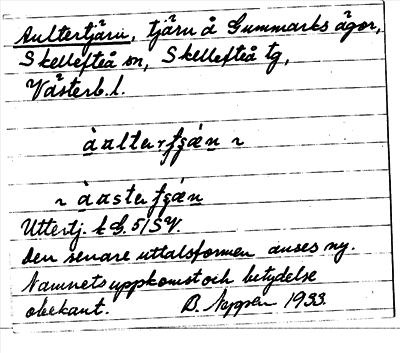 Aultertjärn, tjärn å Gummarks ägor,
Skellefteå sn, Skellefteå tg,
Västerb. l.
àalter
~ àaster
Uttertj. k G. 5/SV.
Den senare uttalsformen anses ny.
Namnets uppkomst och betydelse
obekant. B. 1933.